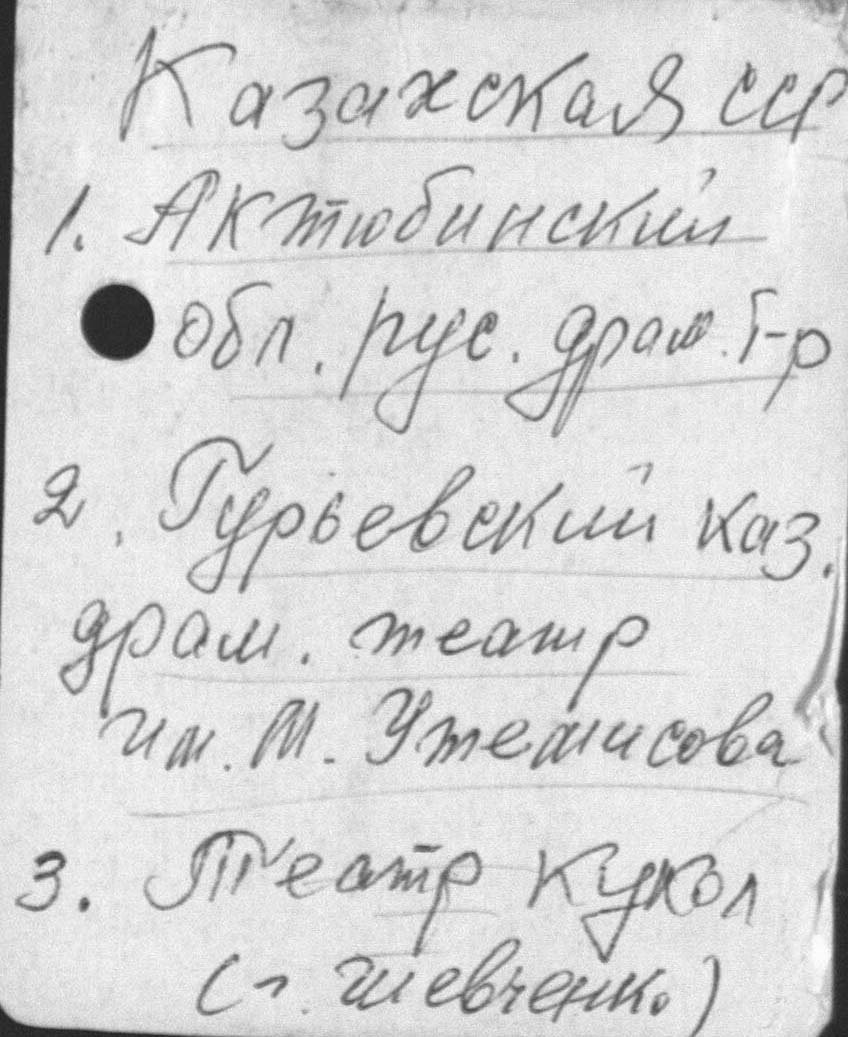 Казахская ССР
1. Актюбинский
обл. рус. драм. т-р
2. Гурьевский каз.
драм. театр
им. М. Утемисова
3. Театр кукол
(г. Шевченк.)